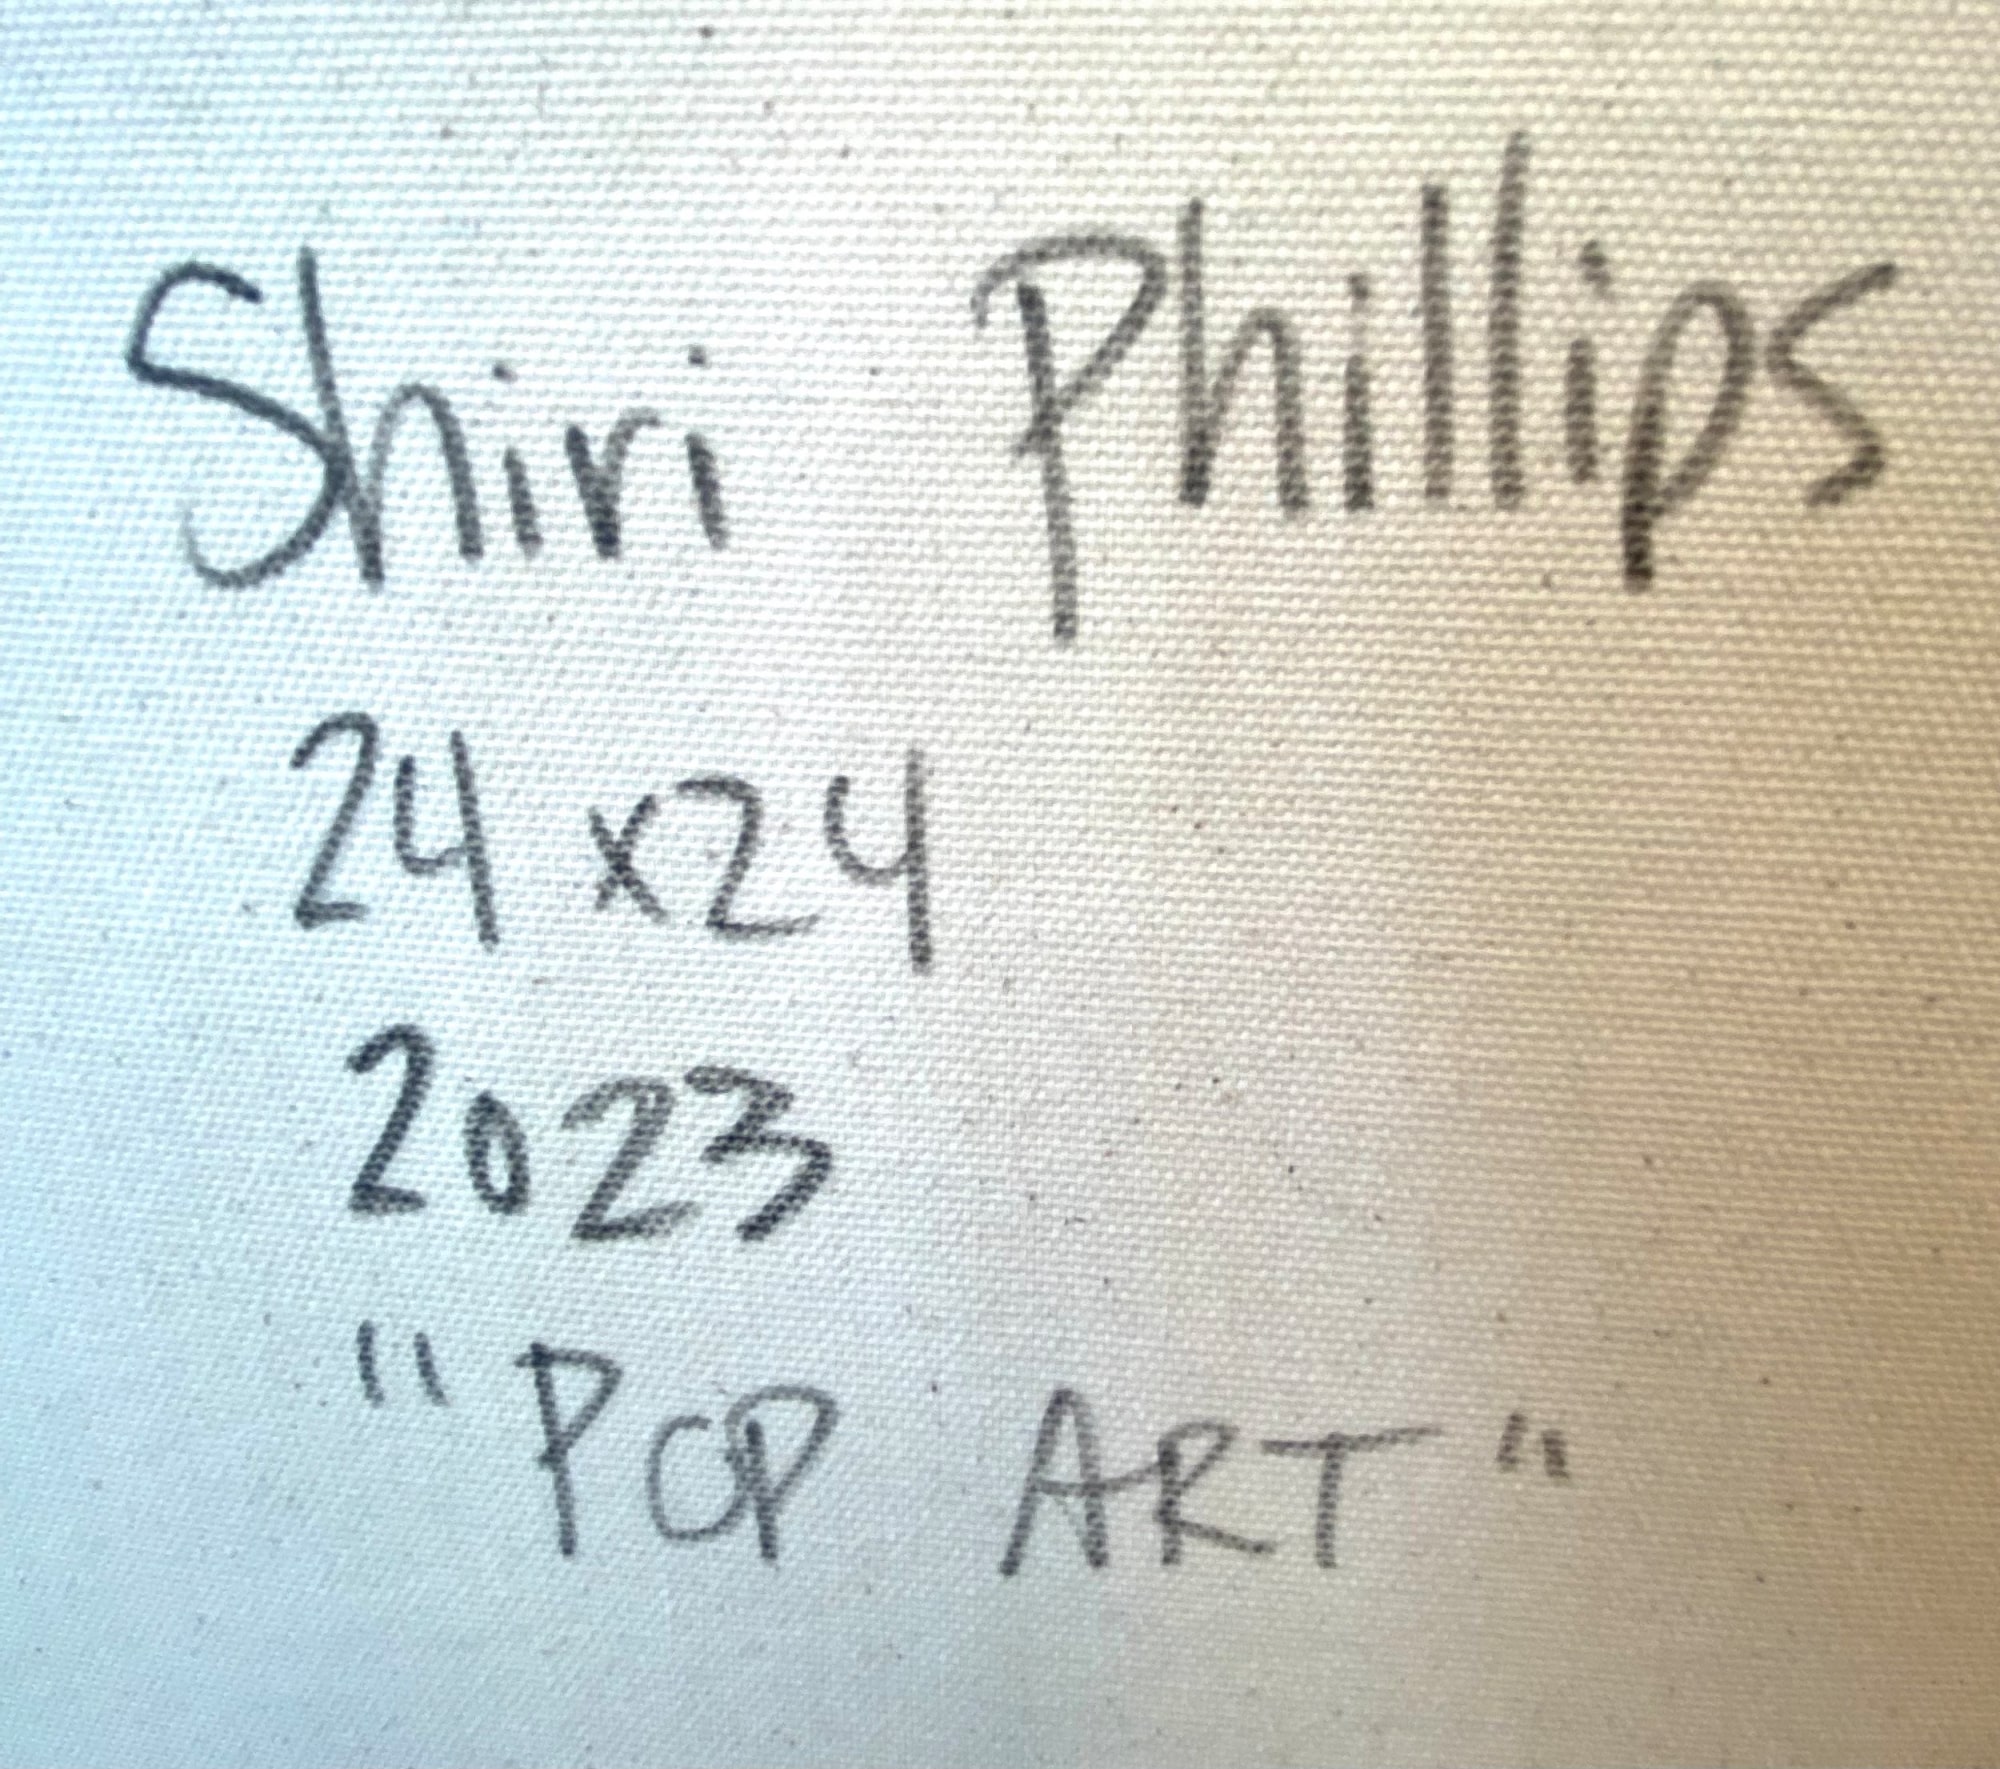 Shiri Phillips
24 x 24
2023
"POP ART"